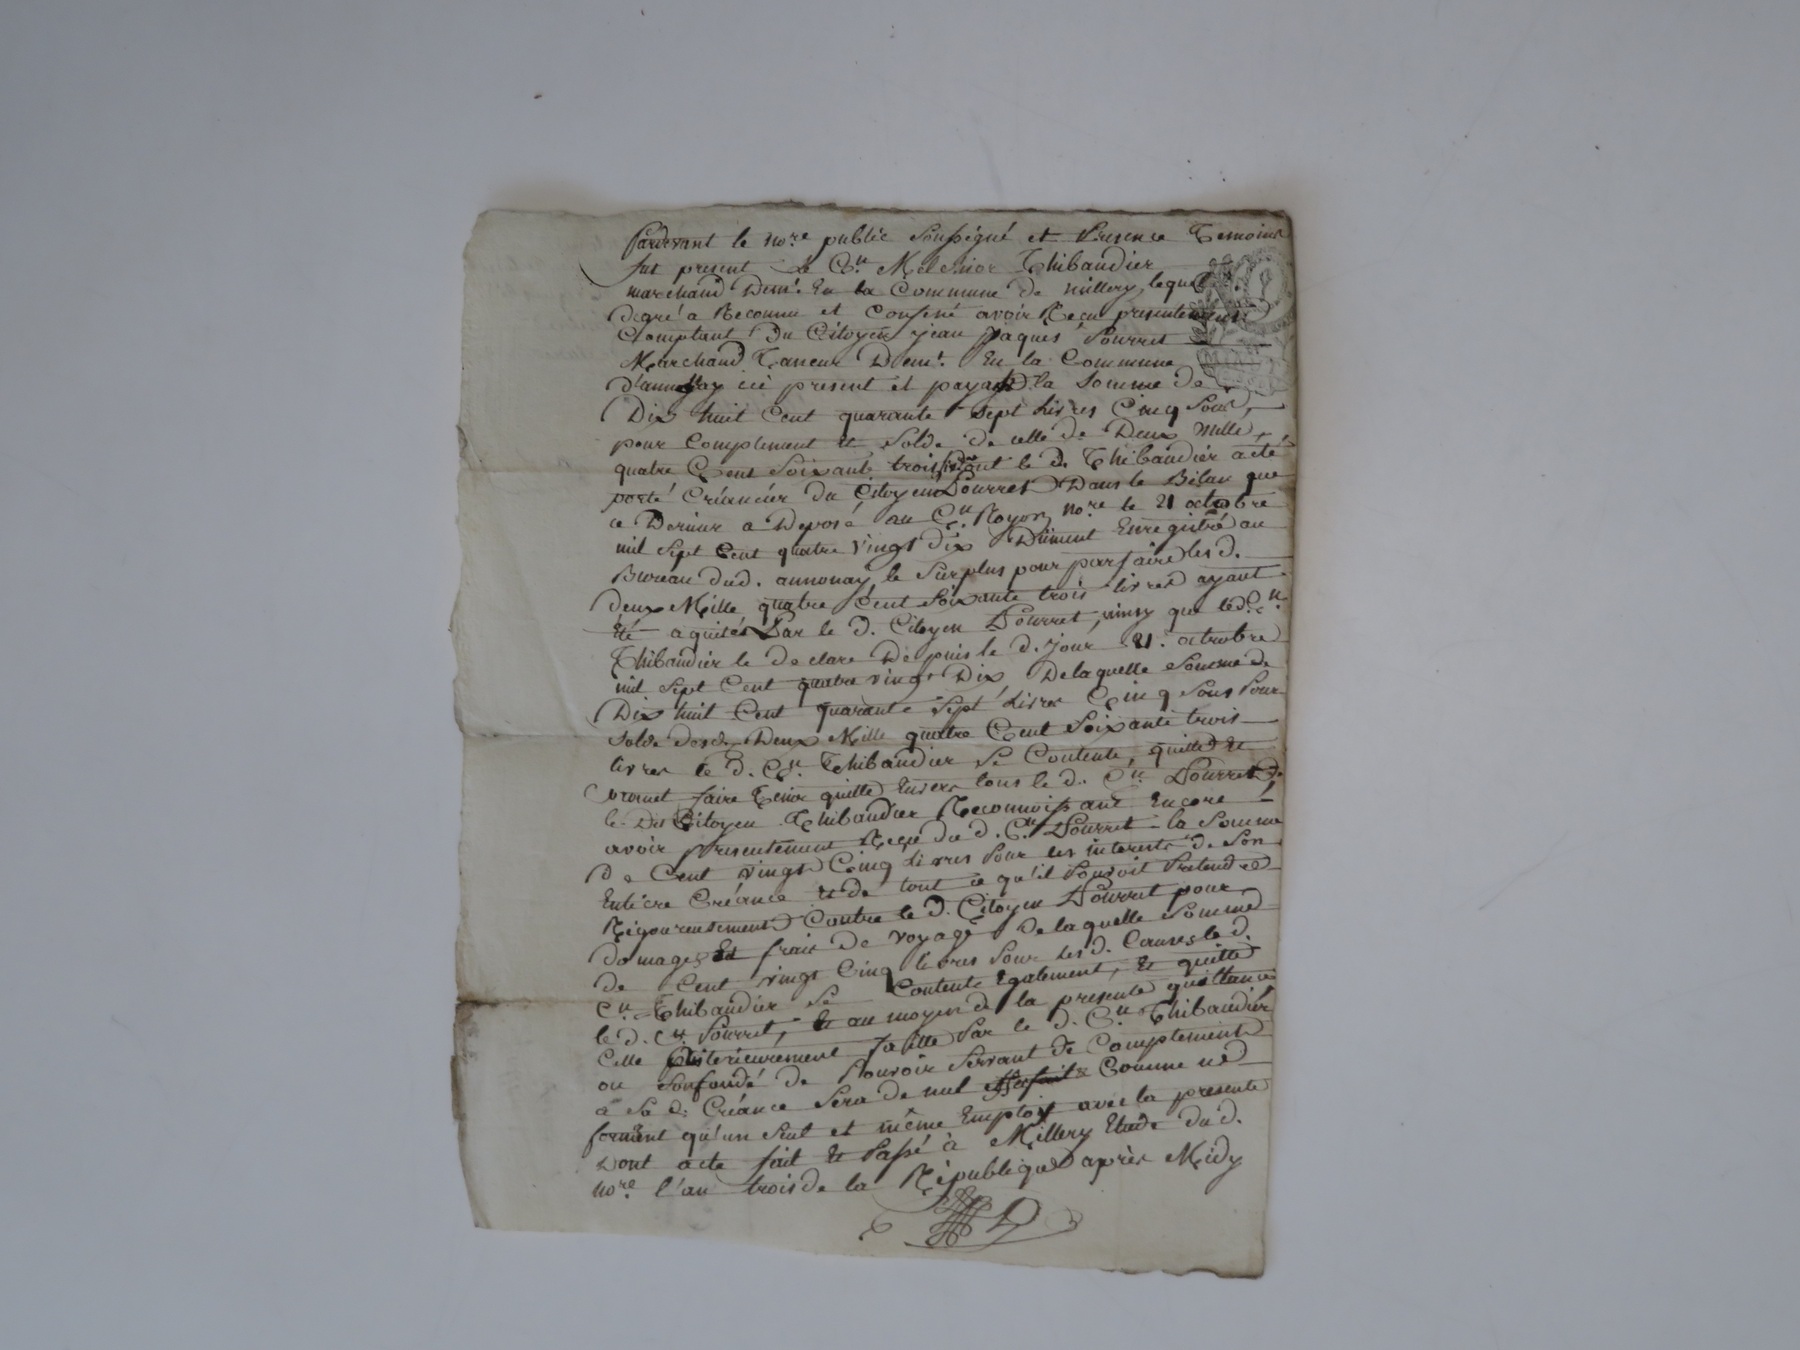 Pardevant le no.re public soussigné et Presence Temoins
fut present Le C.n Melchior Thibaudier
marchand Dem.t En la Commune de millery, lequel
degré a Reconnu et Confessé avoir Reçu presentement
Comptant Du Citoyen jean jaques Pourret
Marchand Taneur Dem.t En la Commune
d'annonay ici present et payant la Somme De
Dix huit Cent quarante Sept Livres Cinq Sous,
pour Complement et Solde de celle de Deux Mille
quatre Cent Soixante trois dont le d. Thibaudier a été
porté Créancier du Citoyen Pourret Dans le Bilan que
ce Dernier a Deposé au C.n Royon no.re le 21 octobre
mil Sept Cent quatre vingt dix Dument Enregistré au
Bureau dud. annonay, le Surplus pour parfaire les d.
deux Mille quatre Cent Soixante trois livres ayant
Eté aquités Par le d. Citoyen Pourret, ainsy que led. C.n
Thibaudier le declare Depuis le d. jour 21. octobre
mil Sept Cent quatre vingt Dix Delaquelle Somme de
Dix huit Cent quarante Sept Livres Cinq Sous Pour
Solde desd. Deux Mille quatre Cent Soixante trois
livres le d. C.n Thibaudier Se Contente, quitte et
promet faire Tenir quitte Envers tous le d. C.n Pourret
le Dit Citoyen Thibaudier Reconnoissant Encore
avoir presentement Reçu du d. C.n Pourret la Somme
De Cent vingt Cinq livres Pour les interets de Son
Entiere Créance et de tout ce qu'il Pouvoit Pretendre
Rigoureusement Contre le d. Citoyen Pourret pour
domages Et frais de voyage Delaquelle Somme
de Cent vingt Cinq livres Pour les d. Causes le d.
C.n Thibaudier Se Contente Egalement, Et quitte
le d. C.n Pourret, Et au moyen de la presente quittance
Celle Faitte Par le d. C.n Thibaudier
ou Son fondé de Pouvoir Servant de Complement
à Sa d. Créance Sera de nul Comme ne
forment qu'un Seul et même Emploi avec la presente
Dont acte fait Et Passé à Millery Etude du d.
no.re l'an trois de la République après Midy